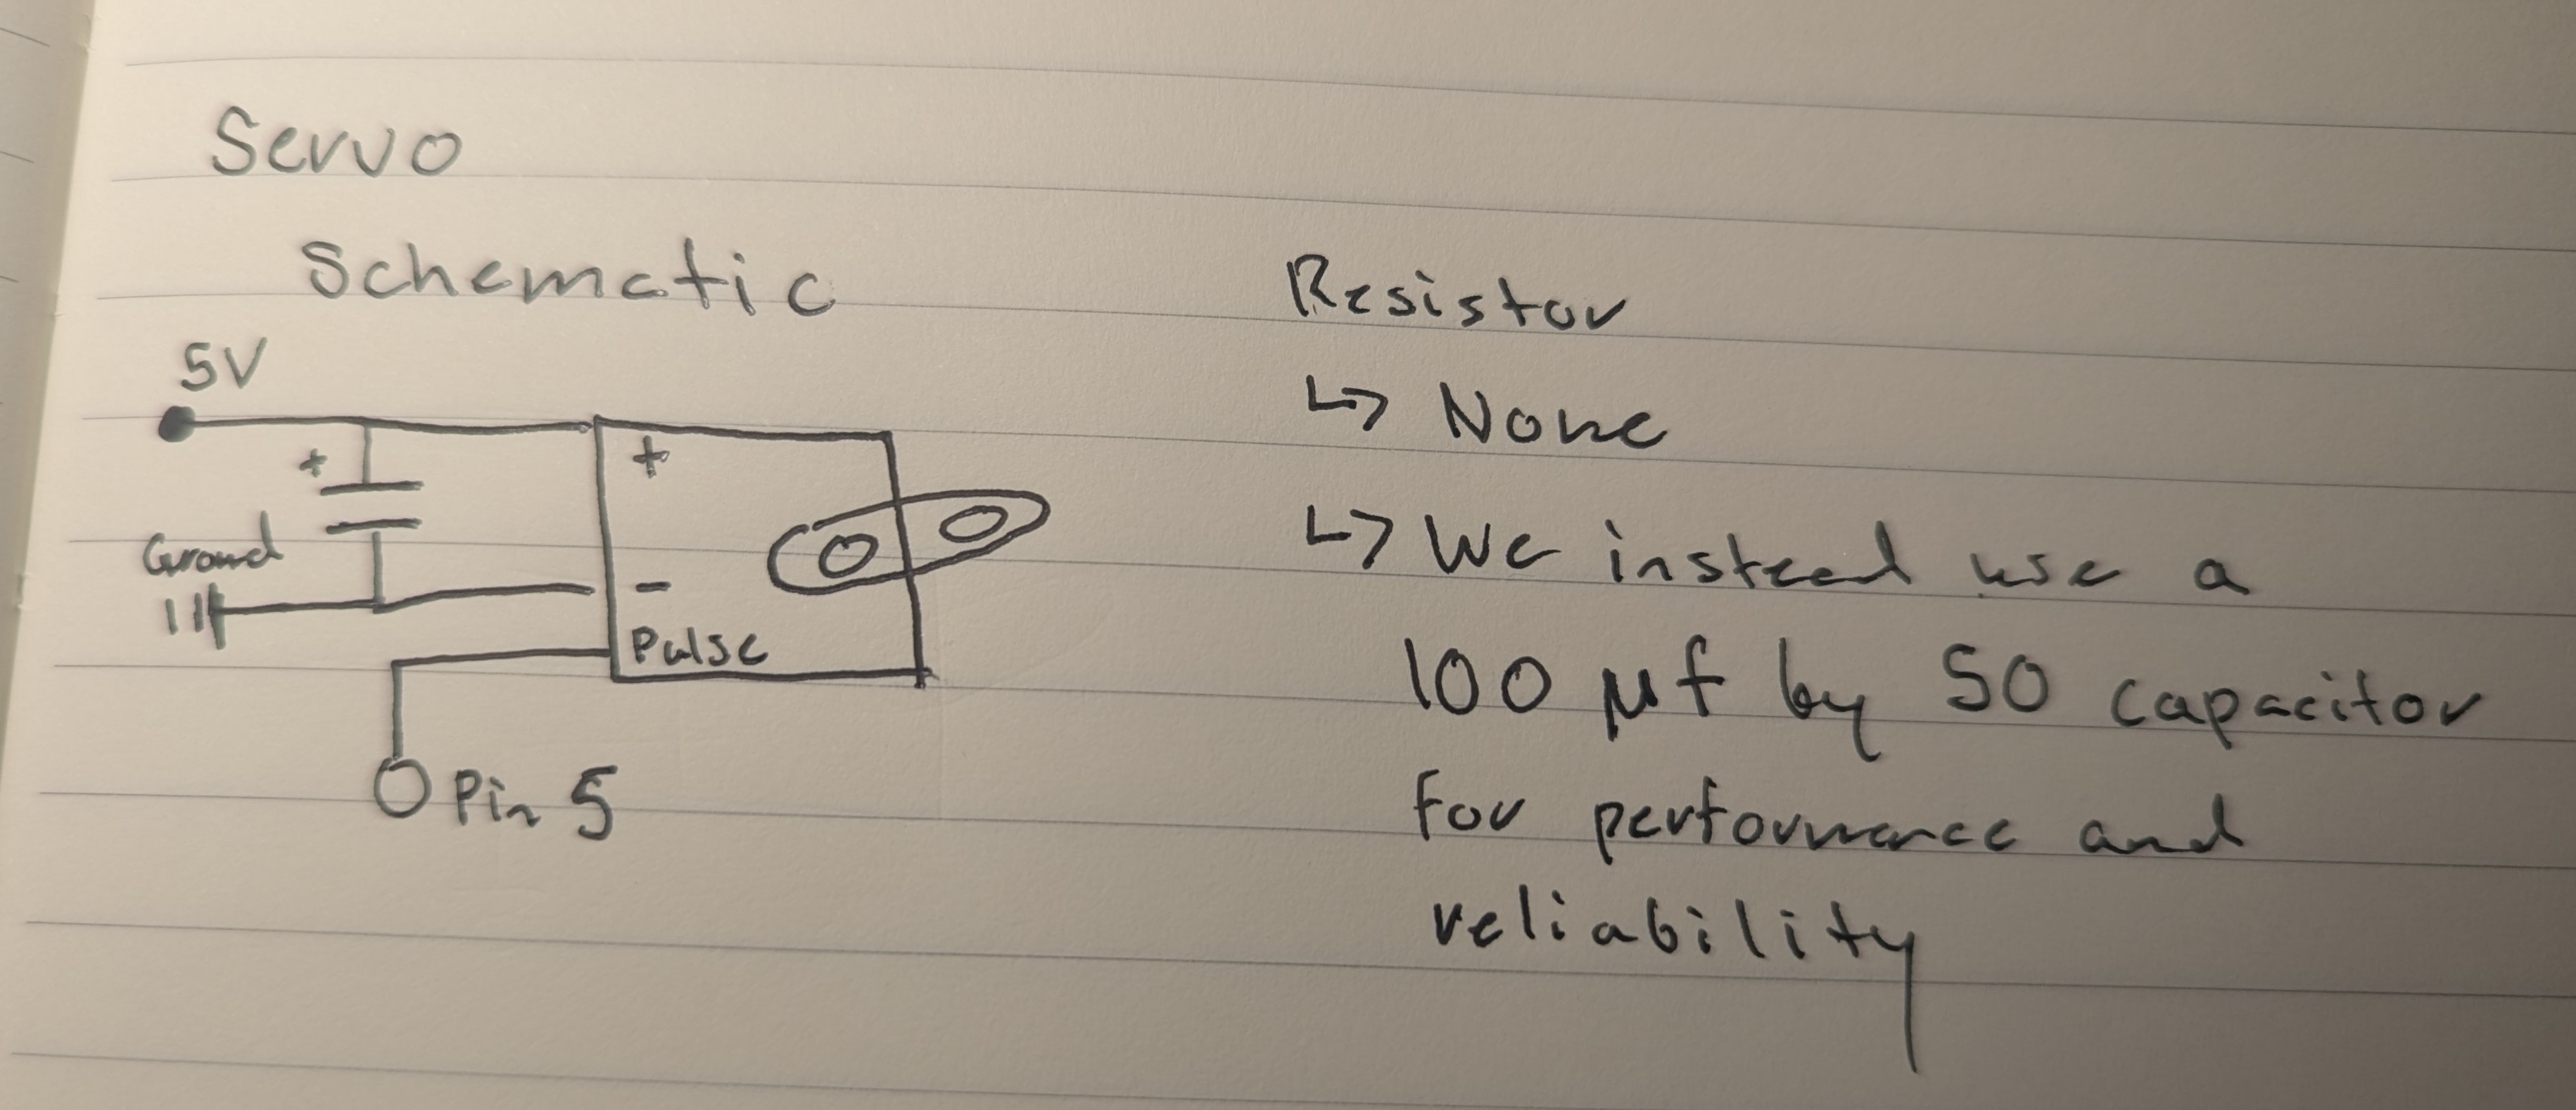 Servo
Schematic
5V
+
+
Ground
-
Pulse
Pin 5
Resistor
↳ None
↳ We instead use a
100 μf by 50 capacitor
for performance and
reliability